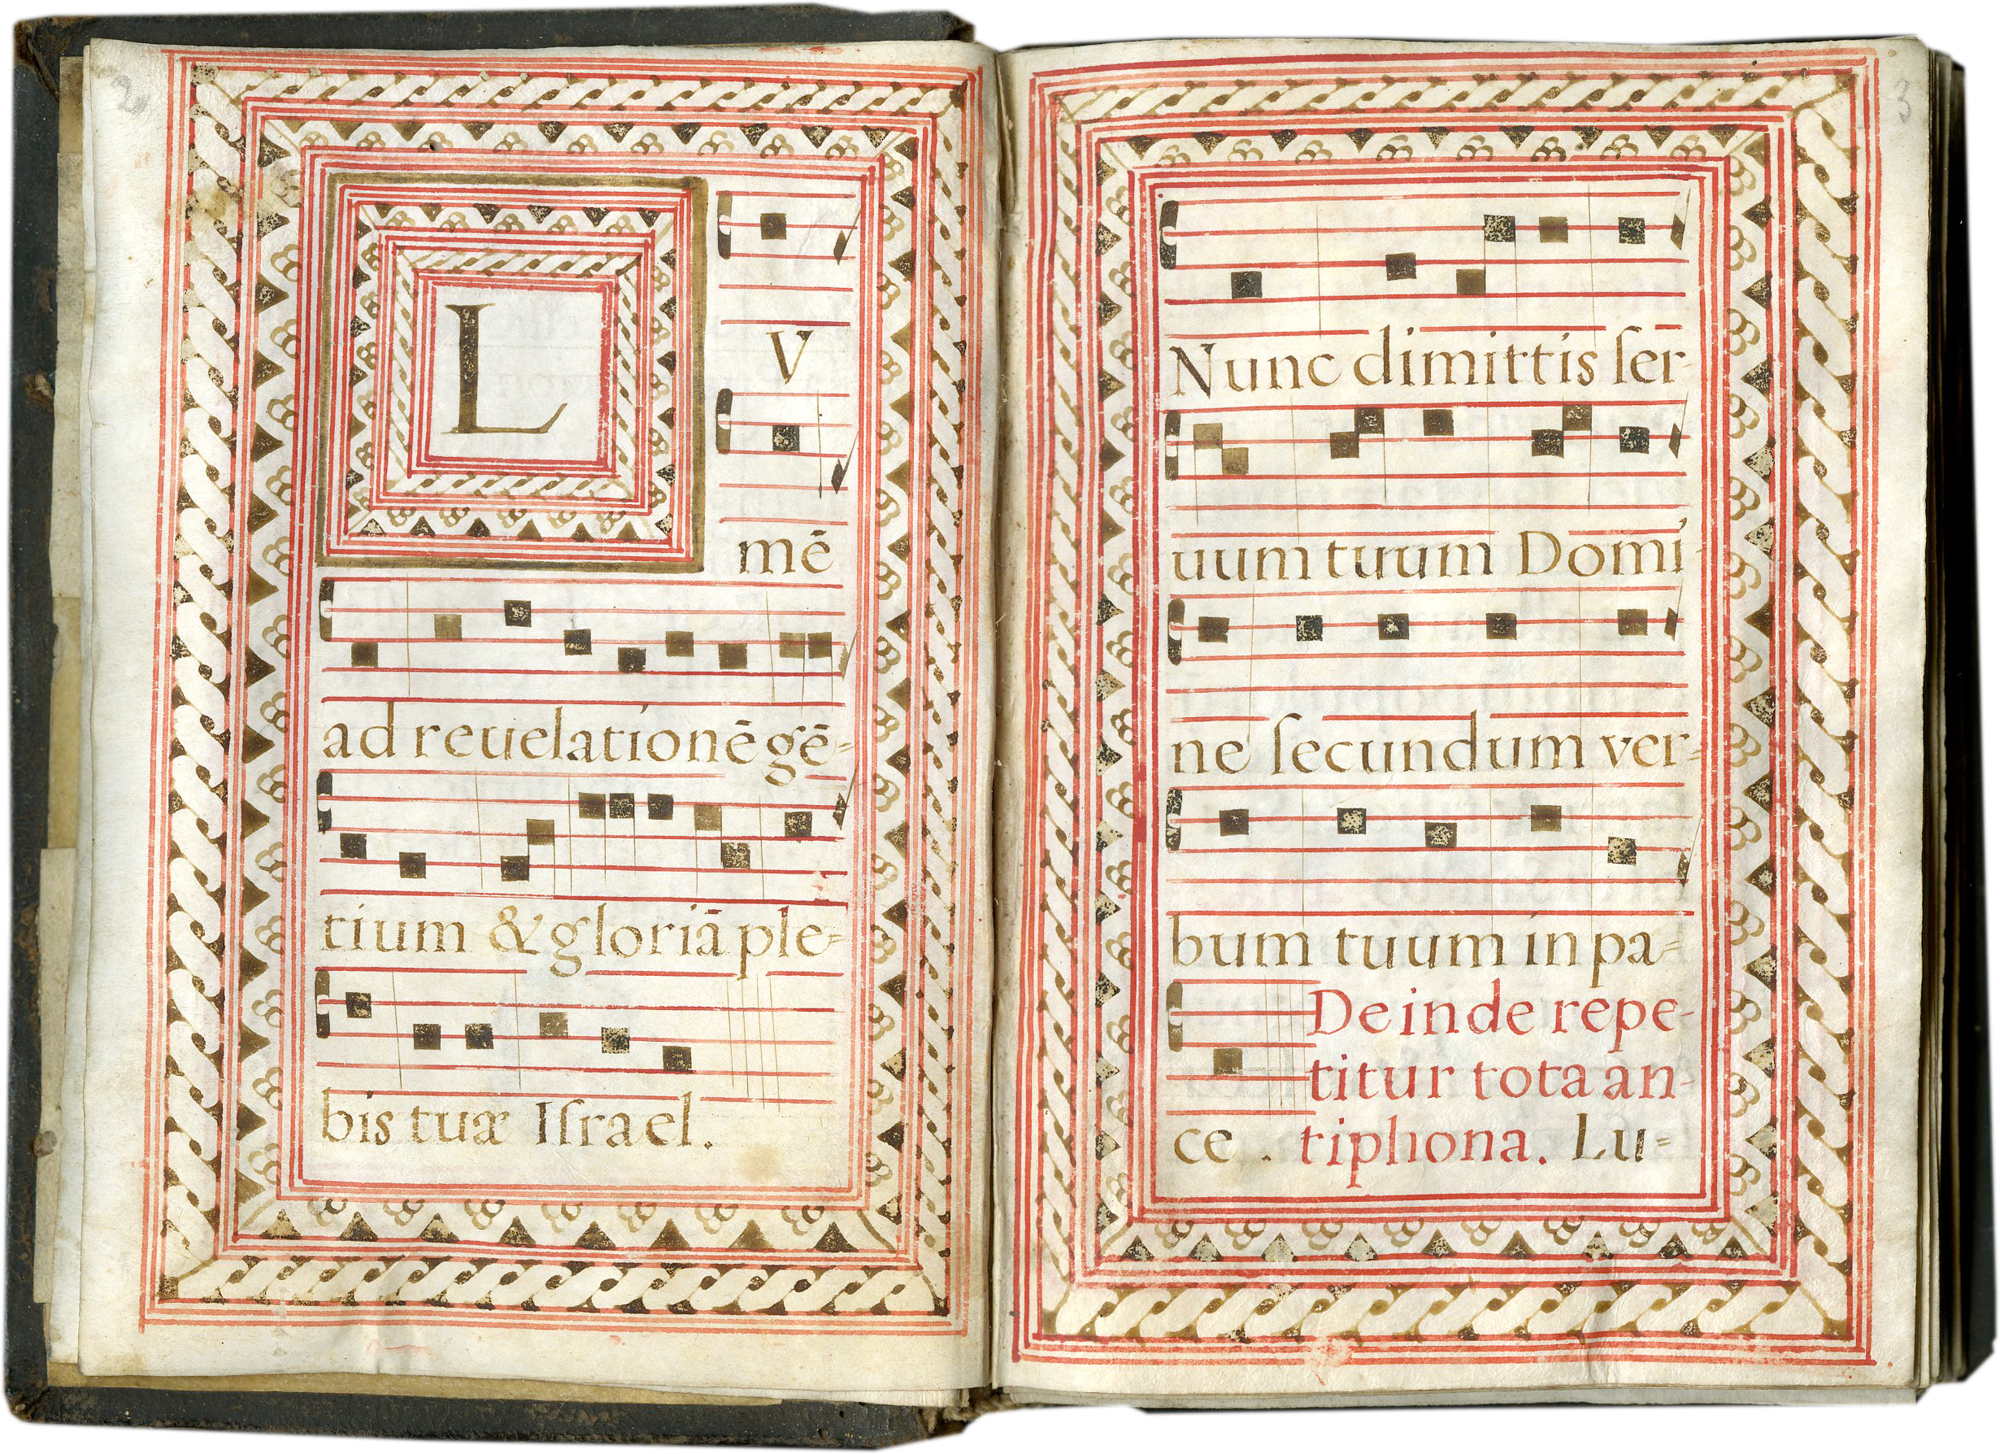 2
L
V
mē
ad reuelationē gē-
tium & gloriā ple-
bis tuæ Iſrael.
3
Nunc dimittis ſer-
uum tuum Domi-
ne ſecundum ver-
bum tuum in pa-
Deinde repe-
titur tota an-
ce . tiphona. Lu-